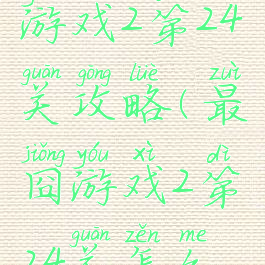 游戏2第24
guān gōng lüè zuì
关攻略(最
jiǒng yóu xì dì
囧游戏2第
guān zěn me
24关怎么